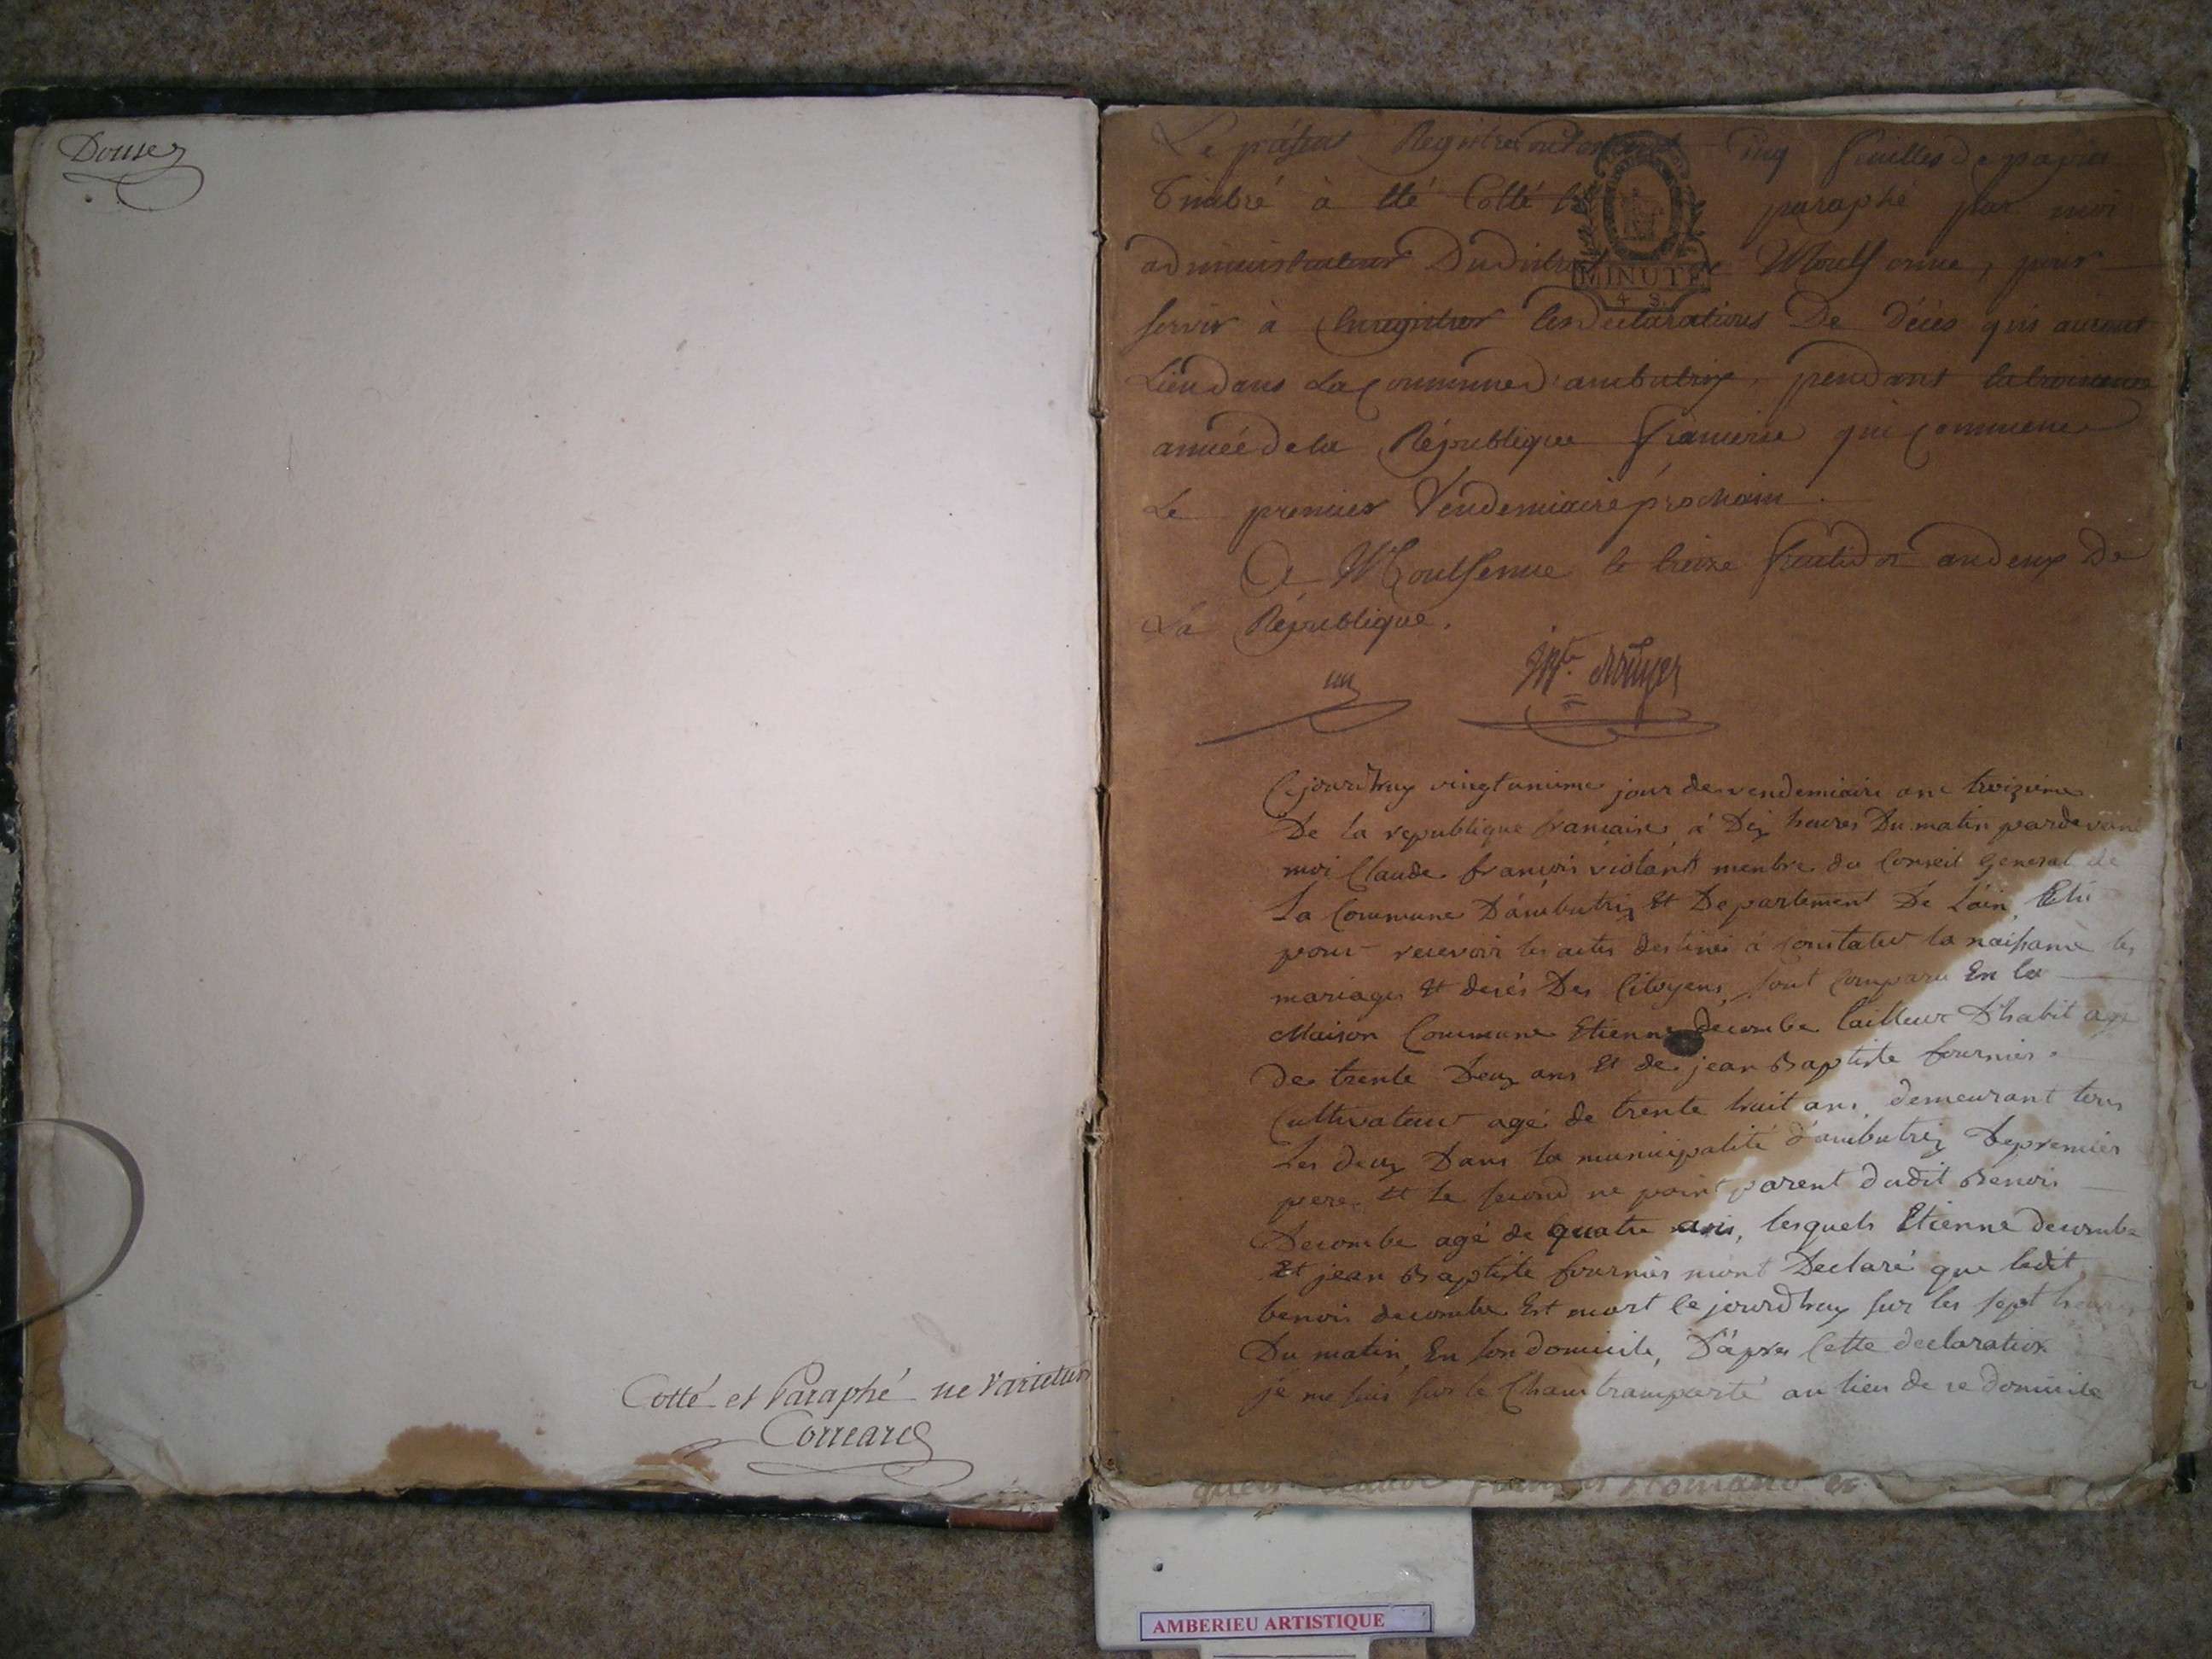 Douze
Cotté et Paraphé ne Varietur
Le présent Registre contenant cinq feuilles de papier
Timbré à été Cotté et paraphé par moi
administrateur Du district de Montferme, pour
servir à Enregistrer les declarations De décès qui auront
Lieu dans La Commune d'ambutrix, pendant la troisieme
année de la République francaise qui Commence
Le premier Vendemiaire prochain.
A Montferme le treize fructidor an deux De
La République.
MINUTE
4 S.
un
Cejourdhuy vingt unieme jour de vendemiaire an troizieme
De la republique francaise, à Dix heures Du matin pardevant
moi Claude françois violant menbre du Conseil General de
La Commune D'ambutrix Et Departement De L'ain, Elu
pour recevoir les actes destinés à constater la naissance les
mariages Et decés Des Citoyens, sont comparu En la
Maison Commune Etienne decombe tailleur D'habit agé
de trente Deux ans Et de jean Baptiste fournier
Cultivateur agé de trente huit ans, demeurant tous
Les deux Dans la municipalité d'ambutrix Le premier
pere Et le second ne point parent dudit Benoi
Decombe agé de quatre ans, lesquels Etienne decombe
Et jean Baptiste fournier mont Declaré que ledit
benoi decombe Est mort Cejourdhuy sur les sept heures
Du matin, En son domicile, D'apres Cette declaration
je me suis sur le Cham transporté au lieu de ce domicile
AMBERIEU ARTISTIQUE